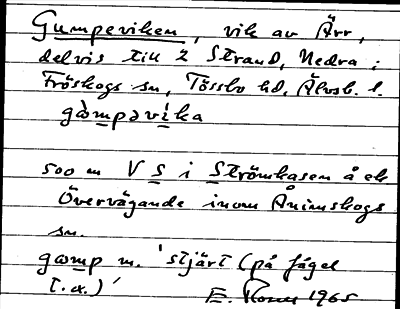 Gumpeviken, vik av Ärr,
delvis till 2 Strand, Nedra i
Fröskogs sn, Tössbo hd, Älvsb. l.
gàmpəvika
500 m V S i Strömkasen å ek
Övervägande inom Ånimskogs
sn.
gamp m. 'stjärt (på fågel
t.ex.)'
E. 1965